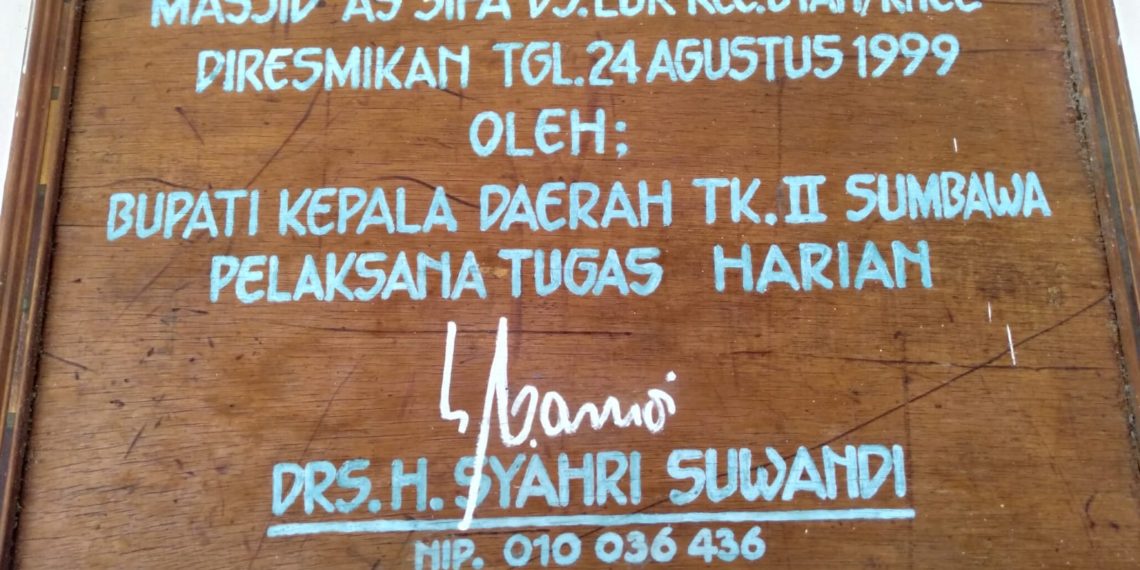 MASJID AS SIFA DS. LUK KEC.
DIRESMIKAN TGL. 24 AGUSTUS 1999
OLEH;
BUPATI KEPALA DAERAH TK. II SUMBAWA
PELAKSANA TUGAS HARIAN
DRS. H. SYAHRI SUWANDI
NIP. 010 036 436